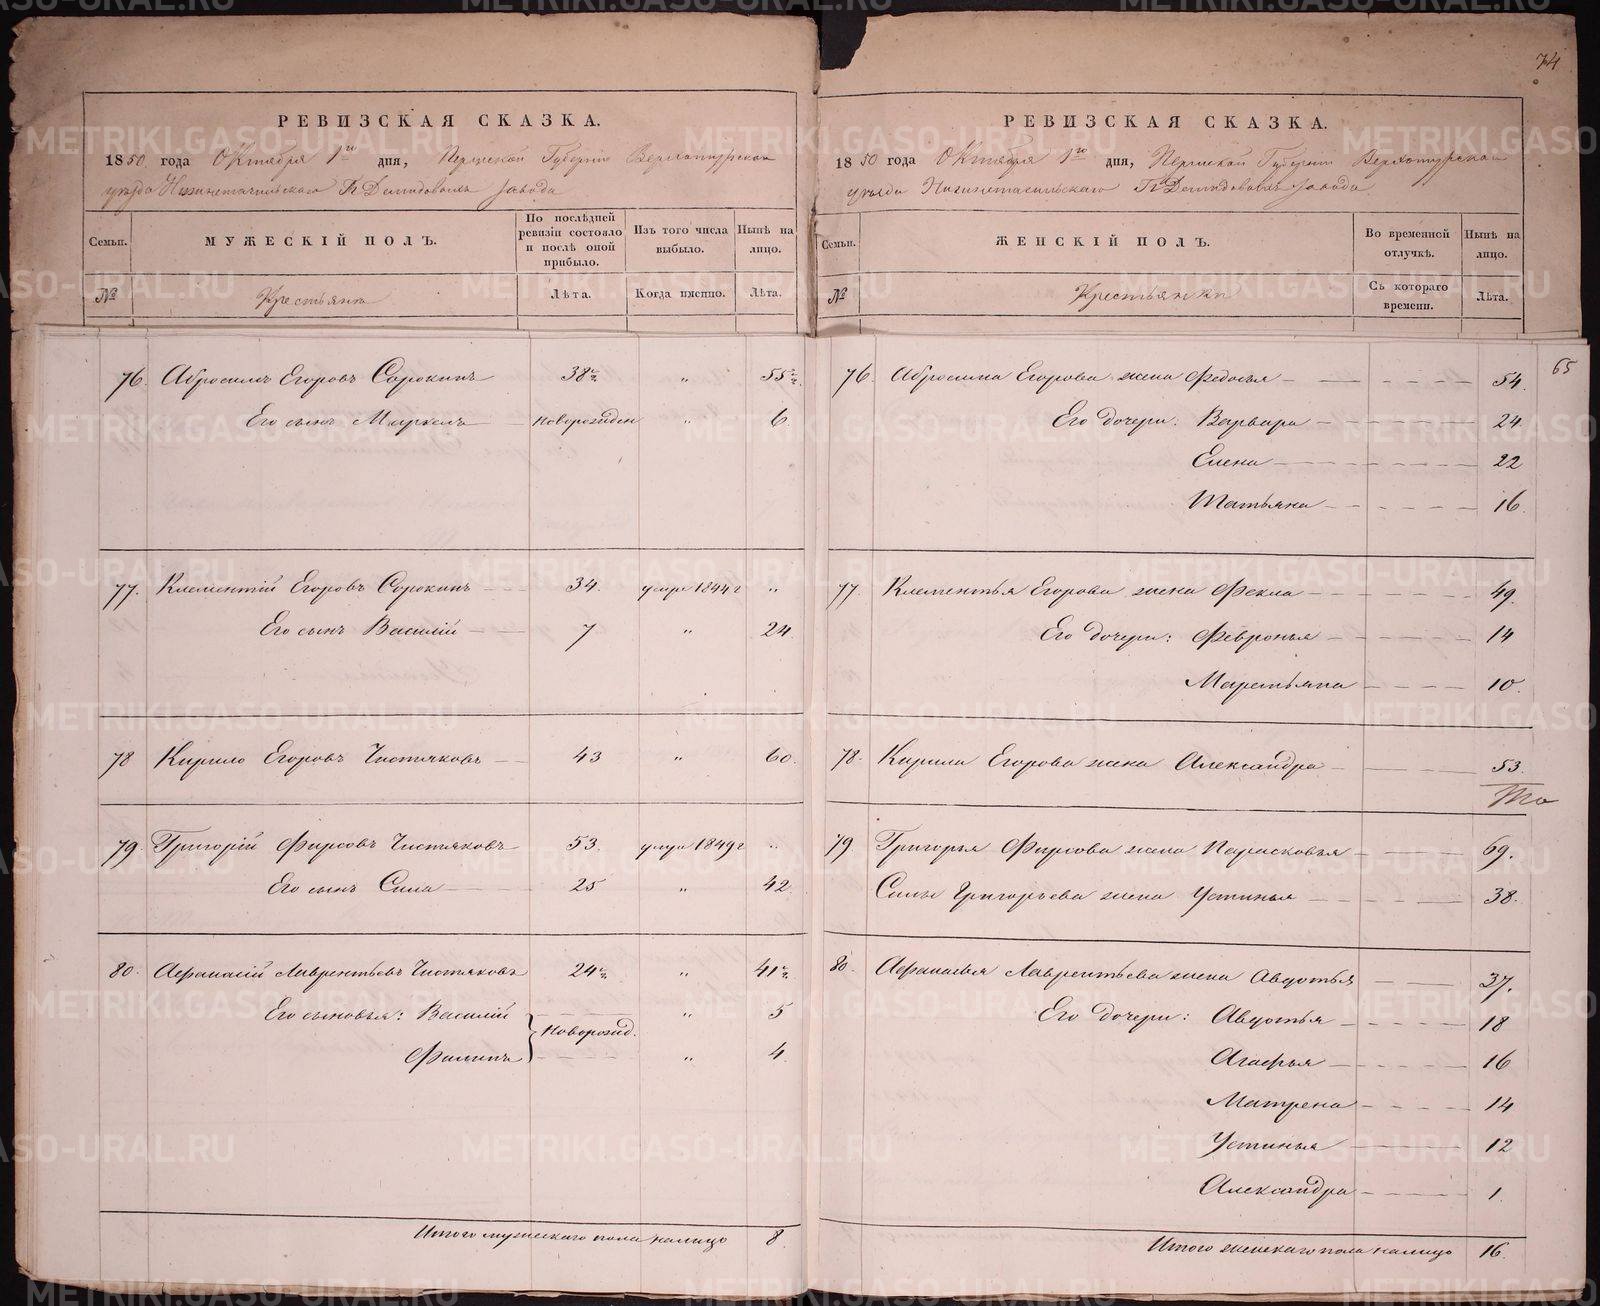 РЕВИЗСКАЯ СКАЗКА.
1850 года Октября 1го дня, Пермской Губернiи Верхотурскаго
уѣзда Нижнетагильскаго Гг Демидовыхъ завода
Семьи. МУЖЕСКІЙ ПОЛЪ. По послѣдней ревизіи состояло и послѣ оной прибыло. Изъ того числа выбыло. Нынѣ на лицо.
№ Крестьяне Лѣта. Когда именно. Лѣта.
76. Абросимъ Егоровъ Сорокинъ 38½ " 55½
Его сынъ Маркелъ Новорожден " 6
77. Клементій Егоровъ Сорокинъ 34. умре 1844 г "
Его сынъ Василій 7 " 24
78 Кирило Егоровъ Чистяковъ 43 " 60.
79. Григорій Фирсовъ Чистяковъ 53. умре 1849 г "
Его сынъ Сила 25 " 42.
80. Афанасій Лаврентьевъ Чистяковъ 24½ " 41½
Его сыновья: Василій " 5
Новорожд.
Филипъ " 4.
Итого мужескаго пола налицо 8.
74
РЕВИЗСКАЯ СКАЗКА.
1850 года Октября 1го дня, Пермской Губернiи Верхотурскаго
уѣзда Нижнетагильскаго Гг Демидовыхъ завода.
Семьи. ЖЕНСКІЙ ПОЛЪ. Во временной отлучкѣ. Нынѣ на лицо.
№ Крестьянки Съ котораго времени. Лѣта.
65
76. Абросима Егорова жена Федосья 54.
Его дочери: Варвара 24.
Елена 22
Татьяна 16.
77 Клементья Егорова жена Фекла 49.
Его дочери: Февронья 14
Маремьяна 10.
78. Кирила Егорова жена Александра 53.
79 Григорья Фирсова жена Парасковья 69.
Силы Григорьева жена Устинья 38.
80. Афанасья Лаврентьева жена Авдотья 37.
Его дочери: Авдотья 18
Агафья 16
Матрена 14
Устинья 12
Александра 1.
Итого женскаго пола налицо 16.
METRIKI.GASO-URAL.RU